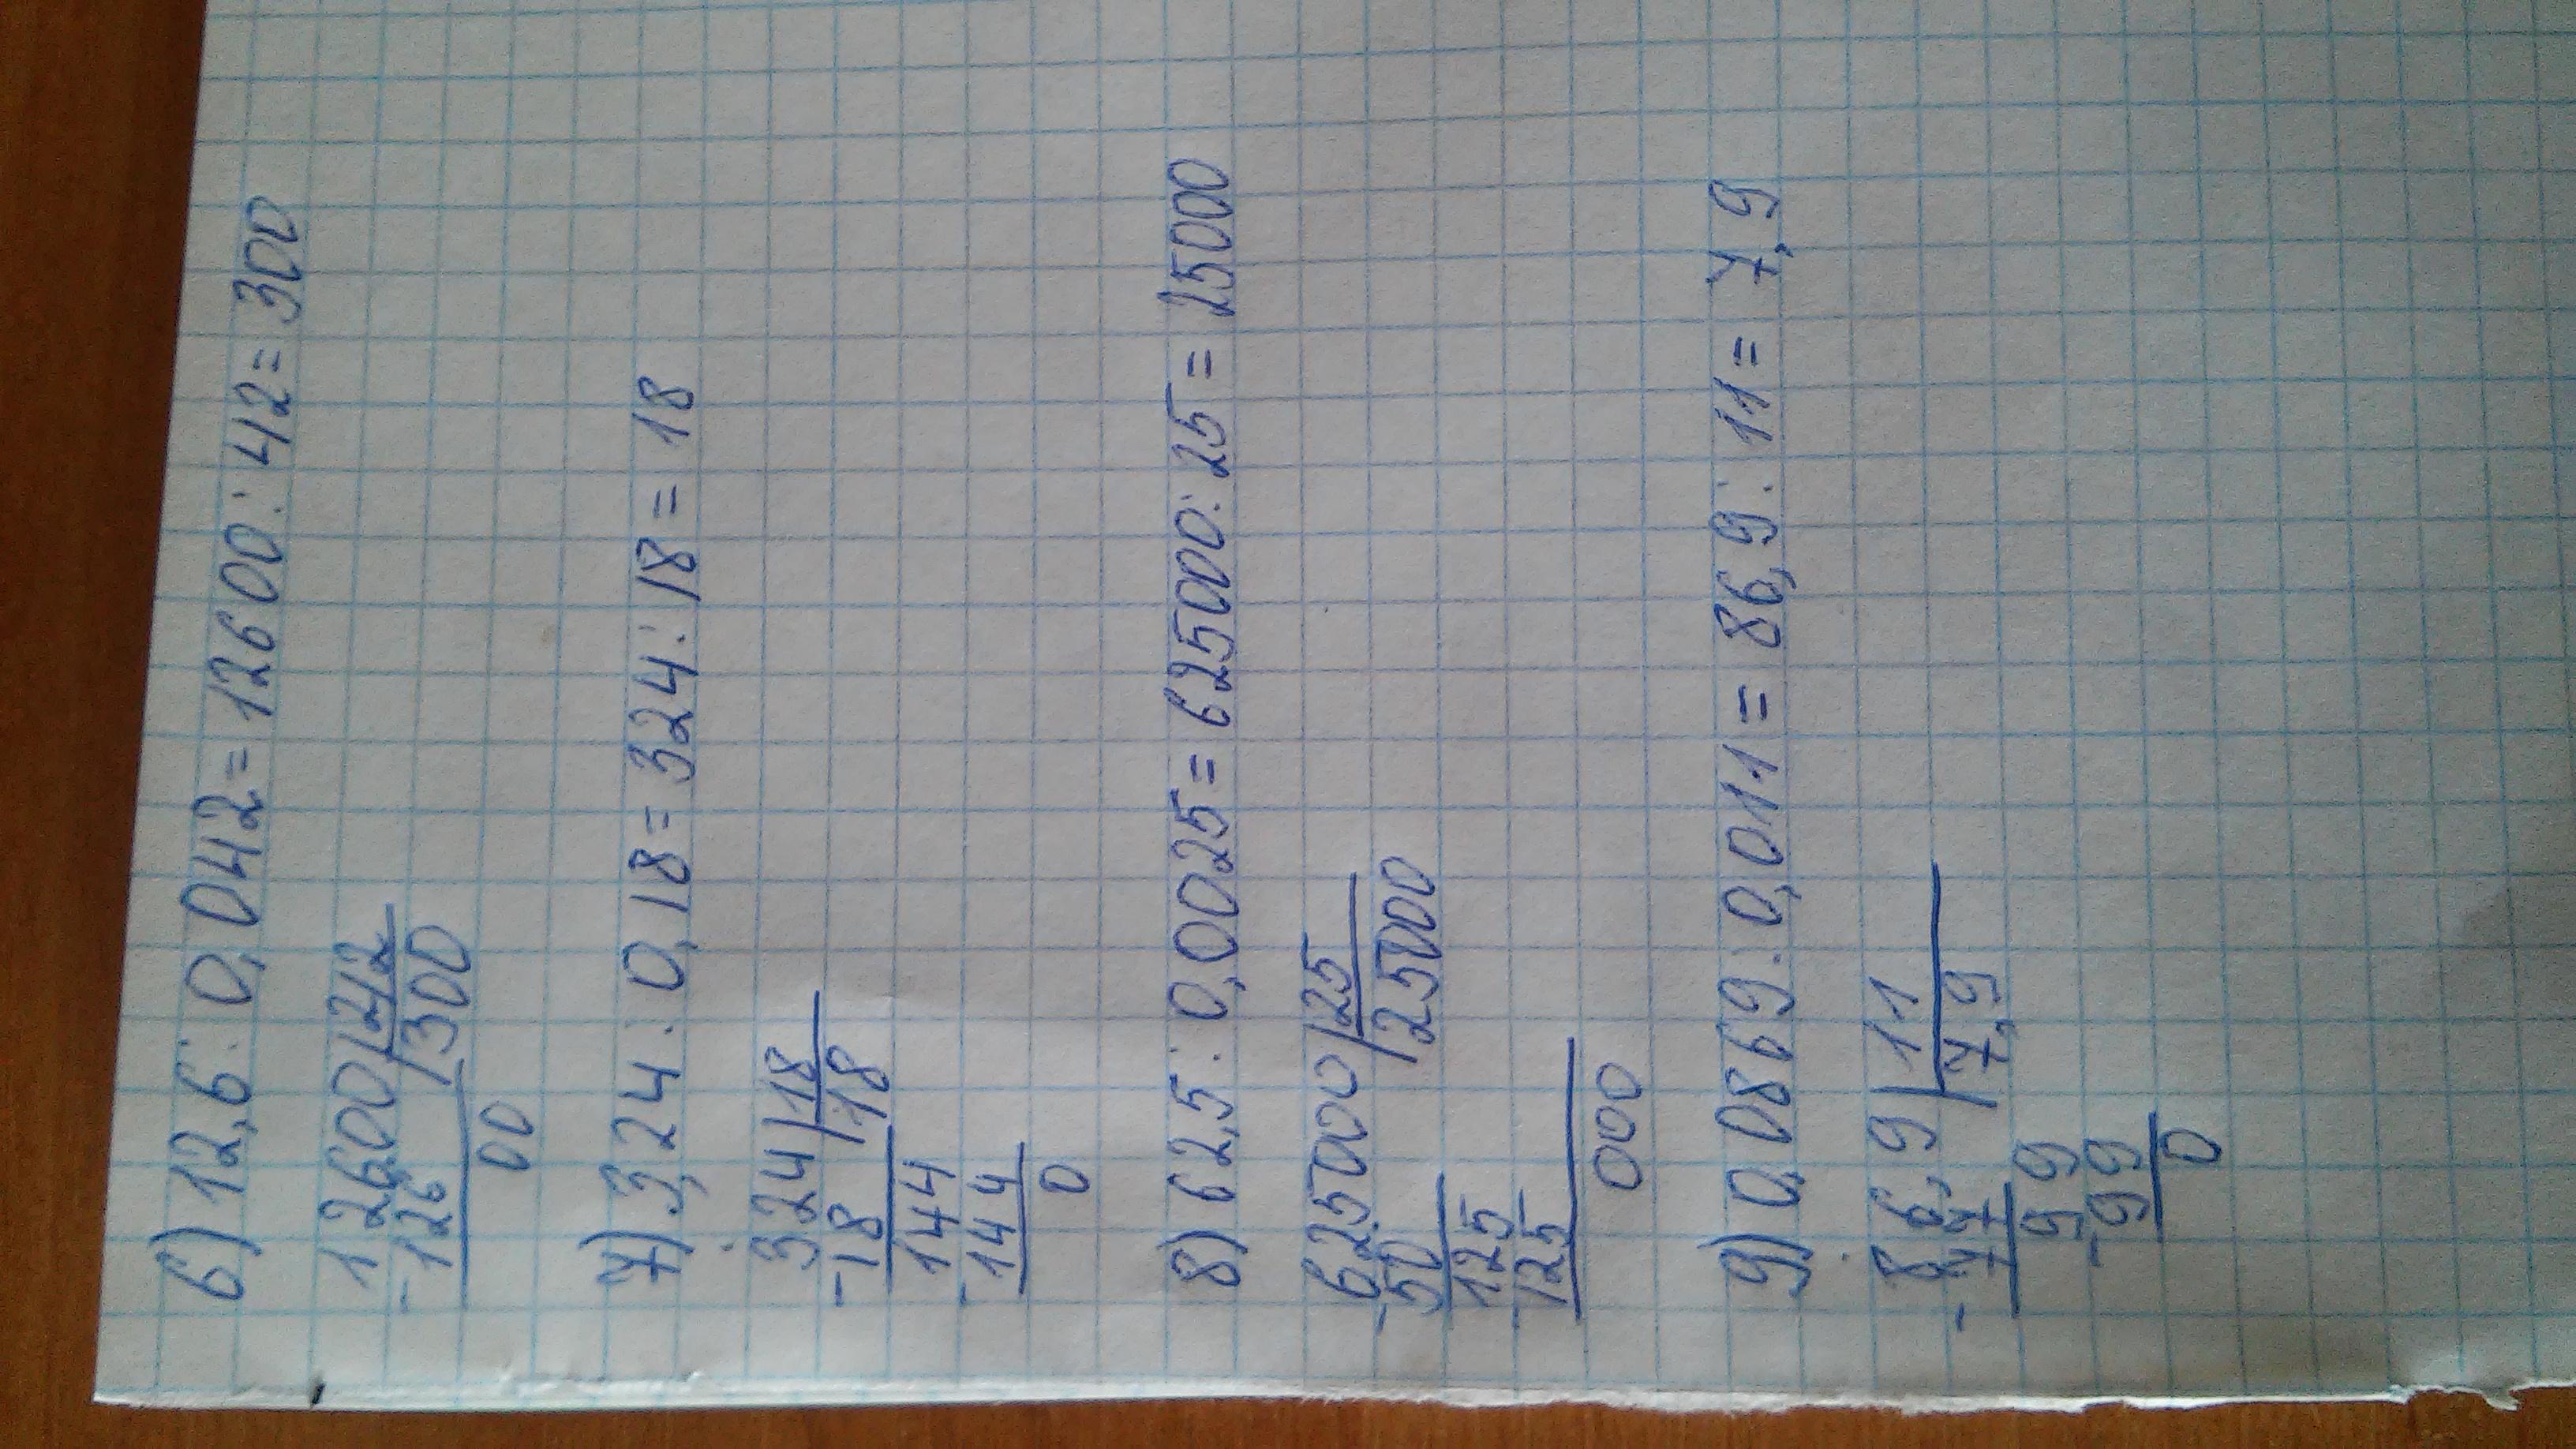 6) 12,6 : 0,042 = 12600 : 42 = 300
12600 | 42
-126 | 300
00
7) 3,24 : 0,18 = 324 : 18 = 18
324 | 18
-18 | 18
144
-144
0
8) 62,5 : 0,0025 = 625000 : 25 = 25000
-625000 | 25
50 | 25000
125
-125
000
9) 0,0869 : 0,011 = 86,9 : 11 = 7,9
86,9 | 11
-77 | 7,9
99
-99
0